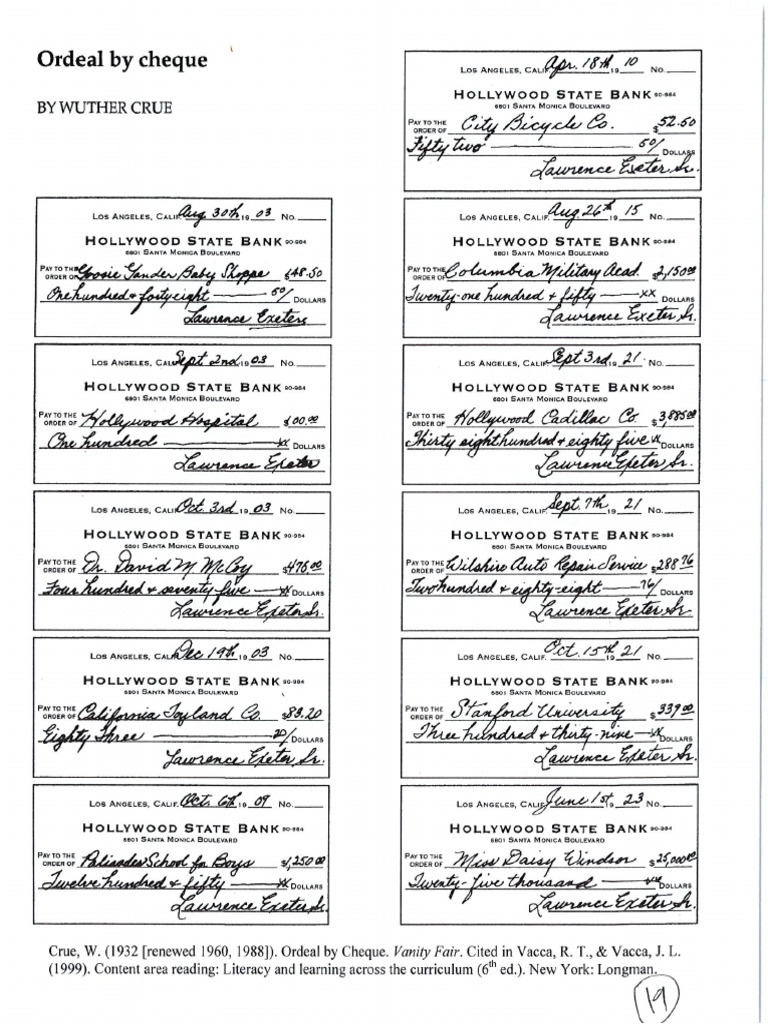 Ordeal by cheque
BY WUTHER CRUE
LOS ANGELES, CALIF. Aug. 30th 19 03 No.
HOLLYWOOD STATE BANK 90-984
6801 SANTA MONICA BOULEVARD
PAY TO THE ORDER OF Goosie Gander Baby Shoppe $148.50
One hundred & forty eight 50/ DOLLARS
Lawrence Exeter
LOS ANGELES, CALIF. Sept 2nd 19 03 No.
HOLLYWOOD STATE BANK 90-984
6801 SANTA MONICA BOULEVARD
PAY TO THE ORDER OF Hollywood Hospital $100.00
One hundred xx DOLLARS
Lawrence Exeter
LOS ANGELES, CALIF. Oct. 3rd 19 03 No.
HOLLYWOOD STATE BANK 90-984
6801 SANTA MONICA BOULEVARD
PAY TO THE ORDER OF Dr. David M. McCoy $475.00
Four hundred & seventy five xx DOLLARS
Lawrence Exeter Sr.
LOS ANGELES, CALIF. Dec 19th 19 03 No.
HOLLYWOOD STATE BANK 90-984
6801 SANTA MONICA BOULEVARD
PAY TO THE ORDER OF California Toyland Co. $83.20
Eighty Three 20/ DOLLARS
Lawrence Exeter Sr.
LOS ANGELES, CALIF. Oct. 6th 19 09 No.
HOLLYWOOD STATE BANK 90-984
6801 SANTA MONICA BOULEVARD
PAY TO THE ORDER OF Palisades School for Boys $1,250.00
Twelve hundred & fifty xx DOLLARS
Lawrence Exeter Sr.
LOS ANGELES, CALIF. Apr. 18th 19 10 No.
HOLLYWOOD STATE BANK 90-984
6801 SANTA MONICA BOULEVARD
PAY TO THE ORDER OF City Bicycle Co. $52.50
Fifty two 50/ DOLLARS
Lawrence Exeter Sr.
LOS ANGELES, CALIF. Aug. 26th 19 15 No.
HOLLYWOOD STATE BANK 90-984
6801 SANTA MONICA BOULEVARD
PAY TO THE ORDER OF Columbia Military Acad. $2,150.00
Twenty-one hundred & fifty xx DOLLARS
Lawrence Exeter Sr.
LOS ANGELES, CALIF. Sept 3rd 19 21 No.
HOLLYWOOD STATE BANK 90-984
6801 SANTA MONICA BOULEVARD
PAY TO THE ORDER OF Hollywood Cadillac Co. $3,885.00
Thirty eight hundred & eighty five xx DOLLARS
Lawrence Exeter Sr.
LOS ANGELES, CALIF. Sept. 7th 19 21 No.
HOLLYWOOD STATE BANK 90-984
6801 SANTA MONICA BOULEVARD
PAY TO THE ORDER OF Wilshire Auto Repair Service $288.76
Two hundred & eighty-eight 76/ DOLLARS
Lawrence Exeter Sr.
LOS ANGELES, CALIF. Oct. 15th 19 21 No.
HOLLYWOOD STATE BANK 90-984
6801 SANTA MONICA BOULEVARD
PAY TO THE ORDER OF Stanford University $339.00
Three hundred & thirty-nine xx DOLLARS
Lawrence Exeter Sr.
LOS ANGELES, CALIF. June 1st 19 23 No.
HOLLYWOOD STATE BANK 90-984
6801 SANTA MONICA BOULEVARD
PAY TO THE ORDER OF Miss Daisy Windsor $25,000.00
Twenty-five thousand xx DOLLARS
Lawrence Exeter Sr.
Crue, W. (1932 [renewed 1960, 1988]). Ordeal by Cheque. Vanity Fair. Cited in Vacca, R. T., & Vacca, J. L.
(1999). Content area reading: Literacy and learning across the curriculum (6th ed.). New York: Longman.
19